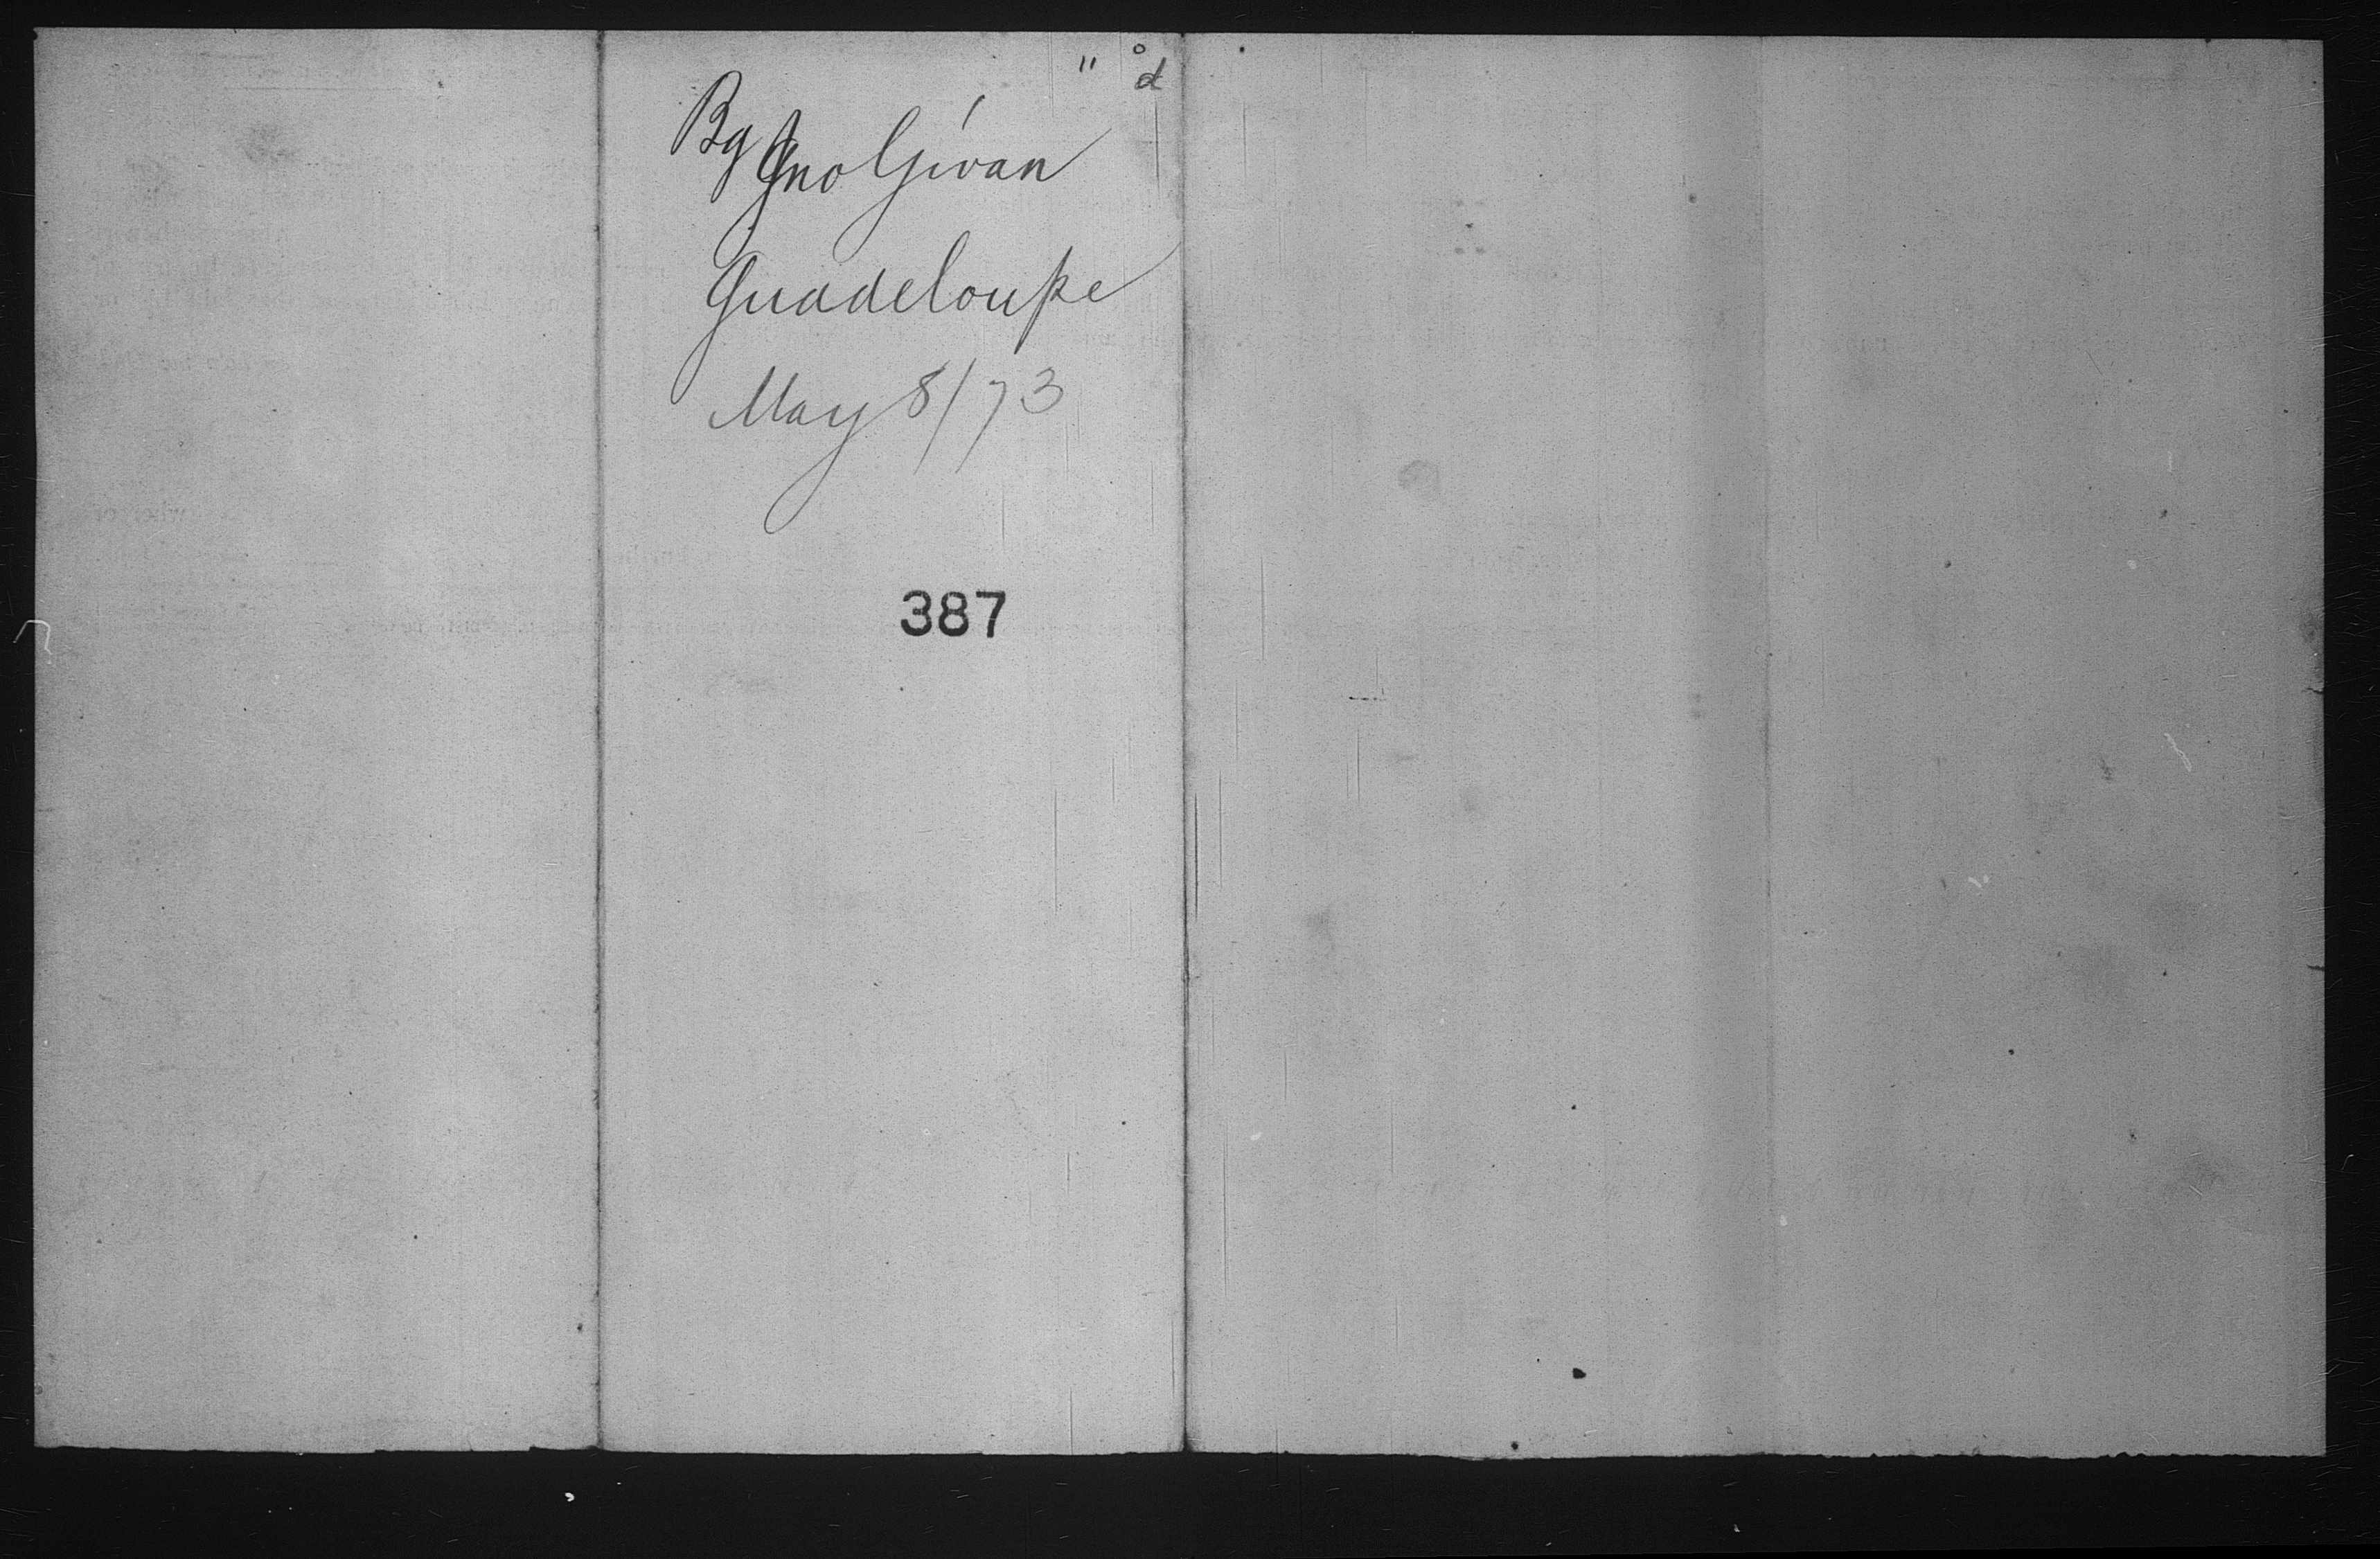 " d
Bg Jno Givan
Guadeloupe
May 8/73
387